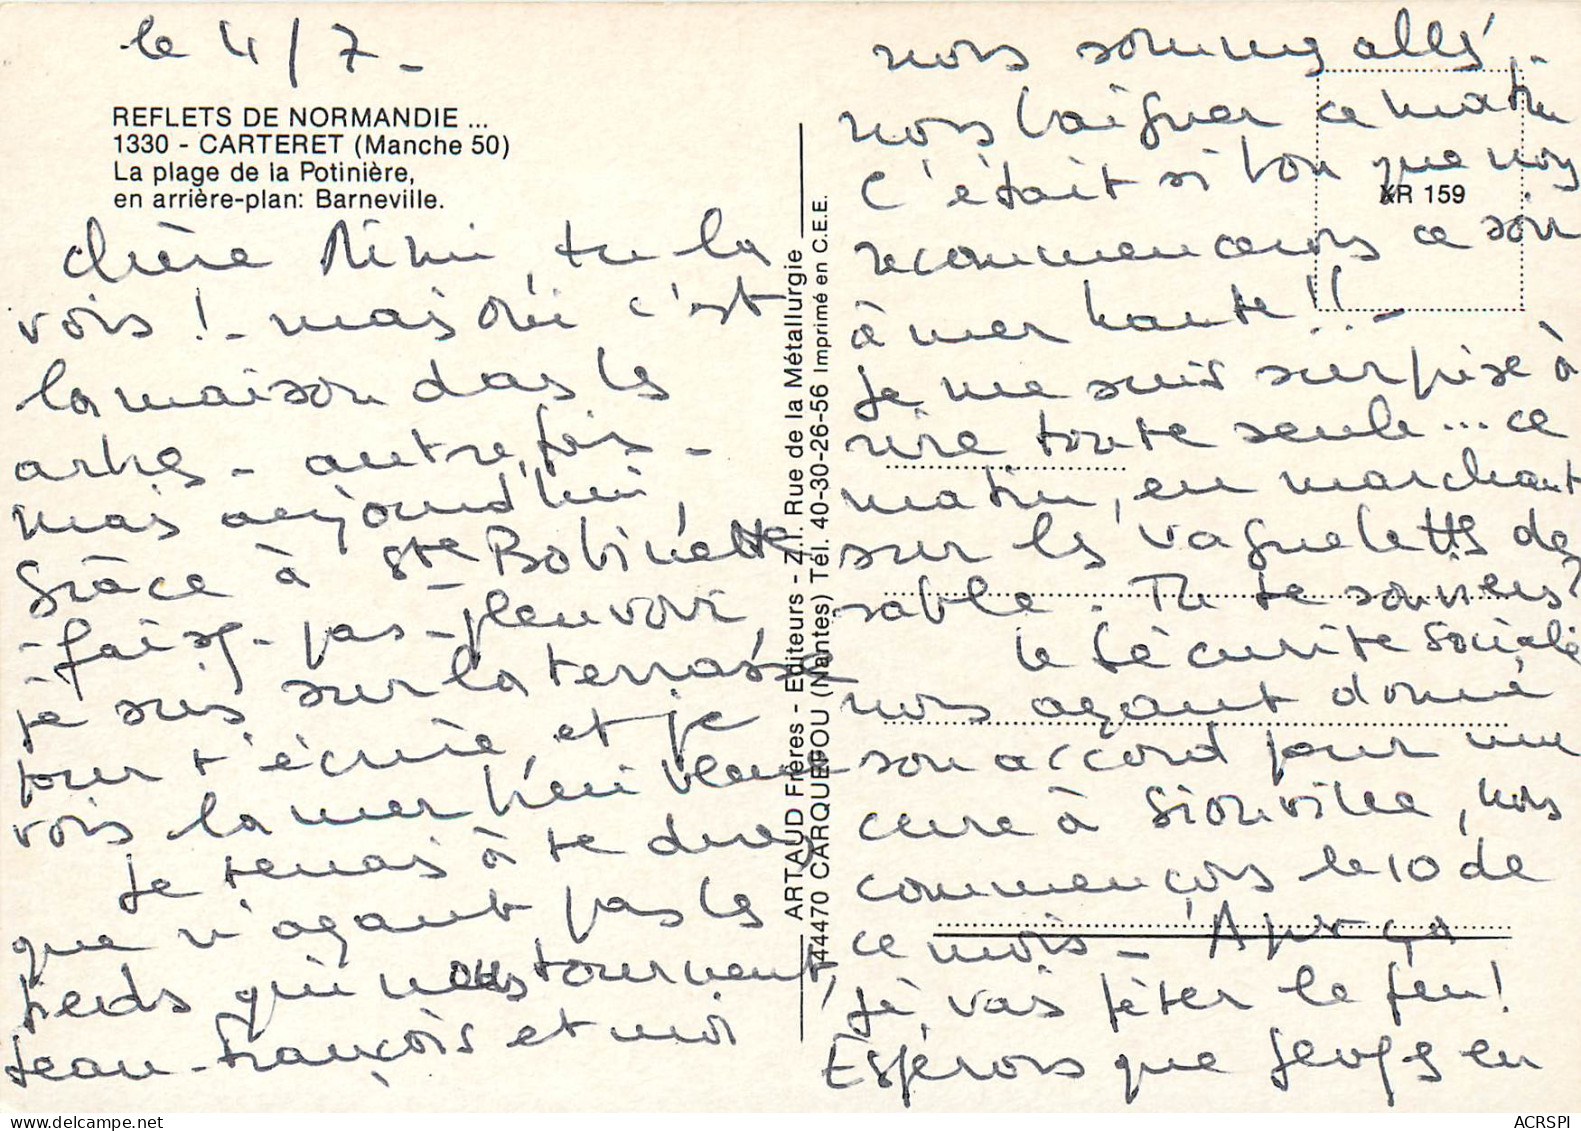 le 4/7-
REFLETS DE NORMANDIE ...
1330 - CARTERET (Manche 50)
La plage de la Potinière,
en arrière-plan: Barneville.
chère Mimi, tu la
vois ! - mais oui c'est
la maison dans les
arbres - autrefois -
mais aujourd'hui,
Grâce à Ste Bobinette
- faisez - pas - pleuvoir,
je suis sur la terrasse
pour t'écrire, et je
vois la mer bleue
Je tenais à te dire
que n'ayant pas les
pieds qui nous tournent,
Jean-François et moi
ARTAUD Frères - Editeurs - Z.I. Rue de la Métallurgie
44470 CARQUEFOU (Nantes) Tél. 40-30-26-56 Imprimé en C.E.E.
XR 159
nous sommes allés
nous baigner ce matin
C'était si bon que nous
recommencerons ce soir
à mer haute !! -
Je me suis surprise à
rire toute seule... ce
matin, en marchant
sur les vaguelettes de
sable. Tu te souviens ?
la Sécurité Sociale
nous ayant donné
son accord pour une
cure à Siouville, nous
commençons le 10 de
ce mois - Après ça
je vas péter le feu !
Espérons que Georges en
ACRSPI